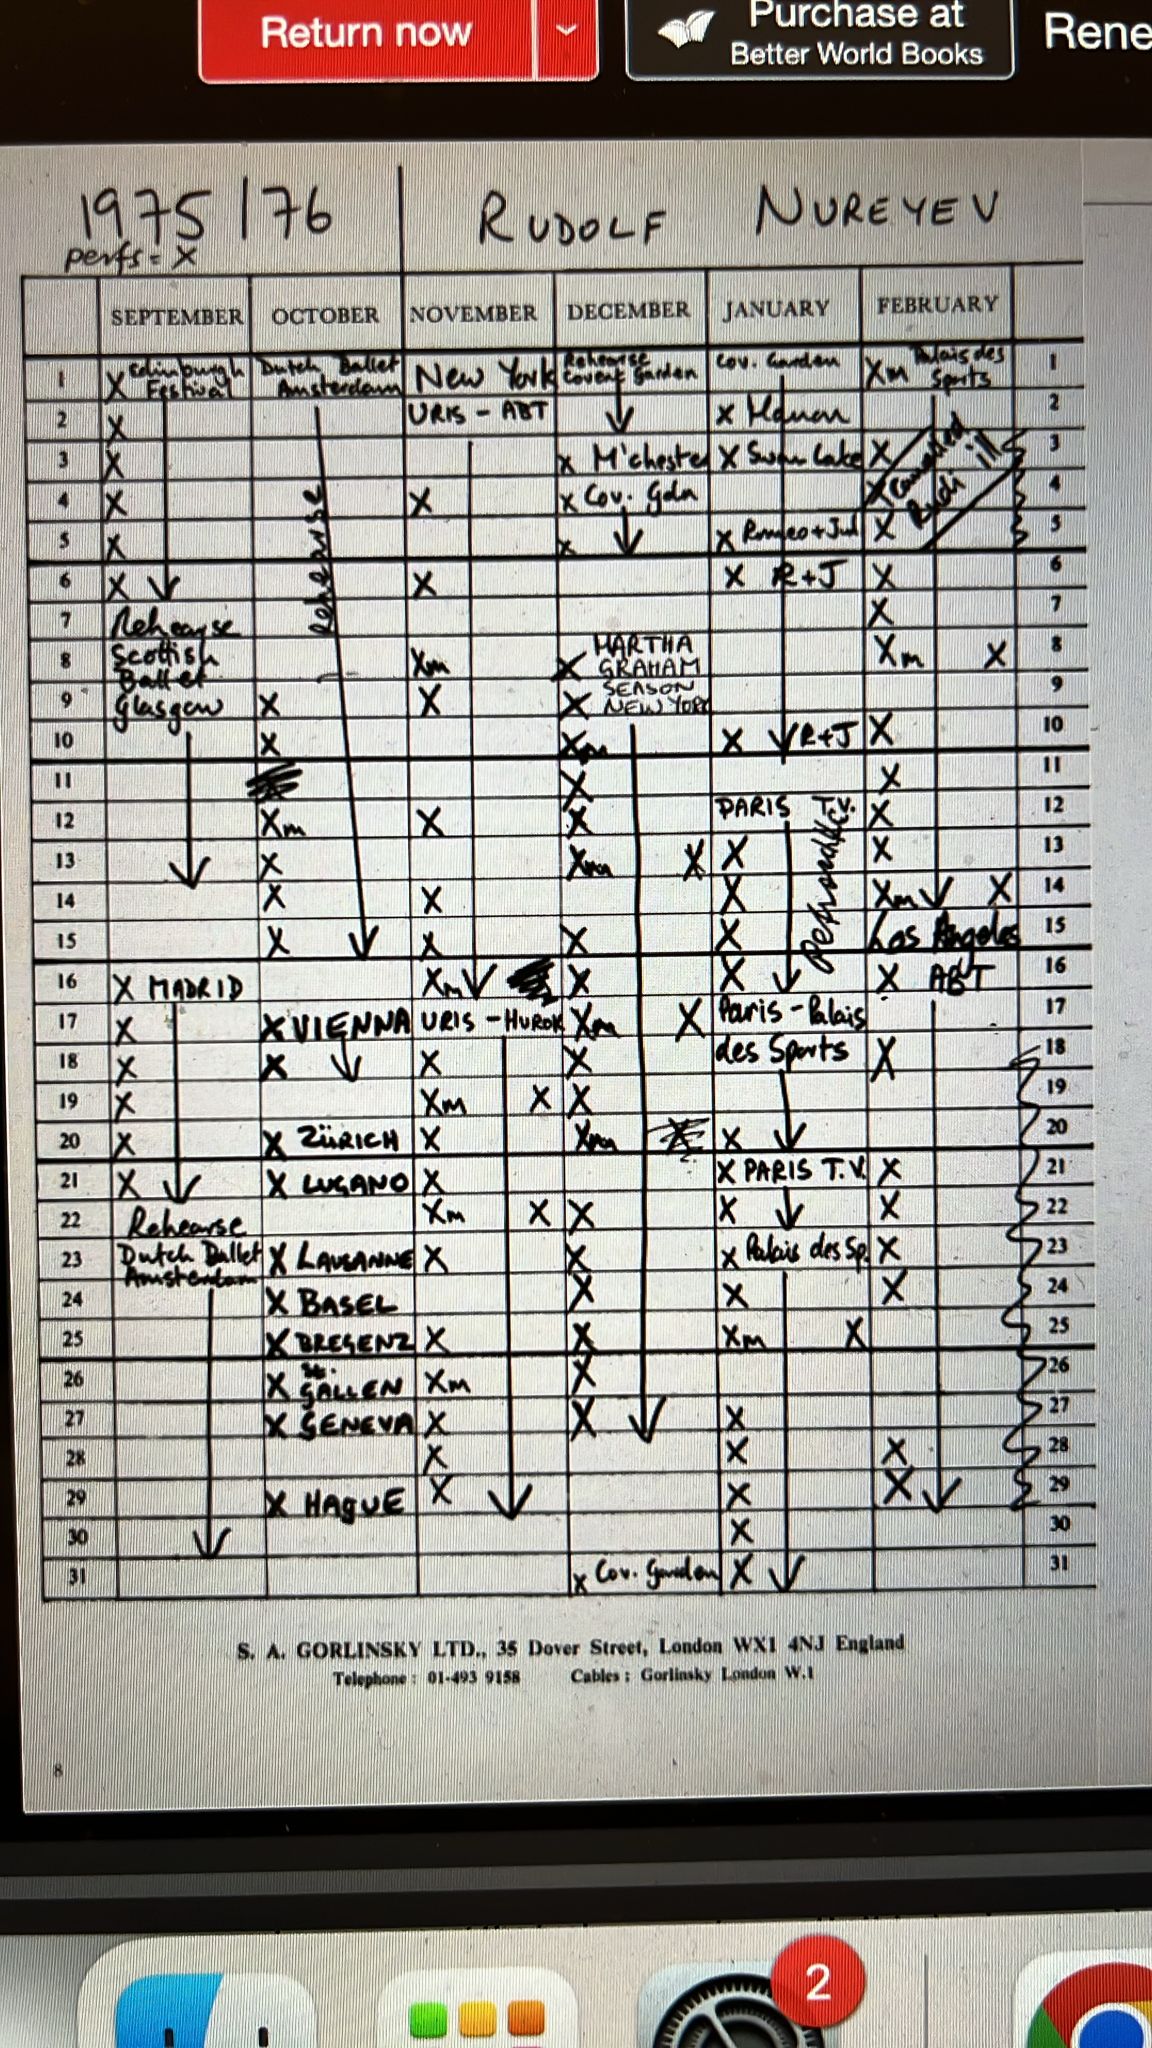 Return now
Purchase at
Better World Books
Rene
1975/76 RUDOLF NUREYEV
perfs = X
SEPTEMBER OCTOBER NOVEMBER DECEMBER JANUARY FEBRUARY
1 X Edinburgh Festival Dutch Ballet Amsterdam New York Rehearse Covent Garden Cov. Garden Xm Palais des Sports 1
2 X URIS - ABT X Manon 2
3 X X M'chester X Swan Lake X Cancelled Rudi ill 3
4 X rehearse X X Cov. Gdn X 4
5 X X X Romeo + Jul X 5
6 X X X R+J X 6
7 Rehearse X 7
8 Scottish Ballet Xm X MARTHA GRAHAM Xm X 8
9 Glasgow X X X SEASON NEW YORK 9
10 X Xm X R+J X 10
11 X X 11
12 Xm X X PARIS T.V. X 12
13 X Xm X X X 13
14 X X X Xm X 14
15 X X X X Los Angeles 15
16 X MADRID Xm X X X ABT 16
17 X X VIENNA URIS - HUROK Xm X Paris - Palais 17
18 X X X X des Sports X 18
19 X Xm X X 19
20 X X ZÜRICH X Xm X X 20
21 X X LUGANO X X PARIS T.V. X 21
22 Rehearse Xm X X X X 22
23 Dutch Ballet Amsterdam X LAUSANNE X X X Palais des Sp. X 23
24 X BASEL X X X 24
25 X BREGENZ X X Xm X 25
26 X St. GALLEN Xm X 26
27 X GENEVA X X X 27
28 X X X 28
29 X HAGUE X X X 29
30 X 30
31 X Cov. Garden X 31
S. A. GORLINSKY LTD., 35 Dover Street, London WX1 4NJ England
Telephone : 01-493 9158 Cables : Gorlinsky London W.1
8
2